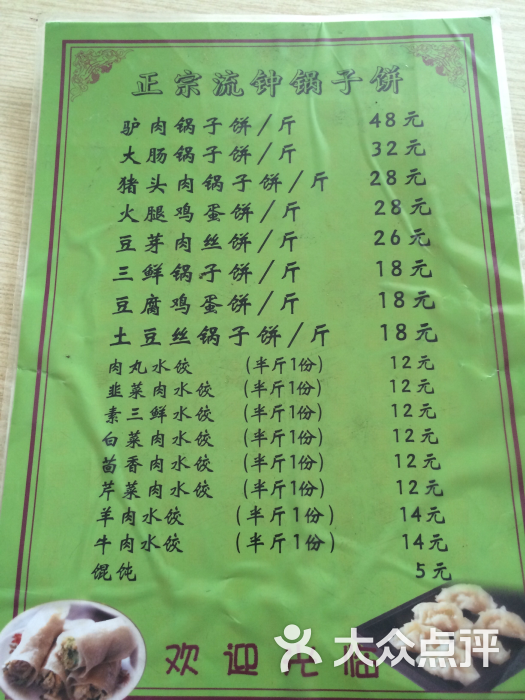 正宗流钟锅子饼
驴肉锅子饼/斤 48元
大肠锅子饼/斤 32元
猪头肉锅子饼/斤 28元
火腿鸡蛋饼/斤 28元
豆芽肉丝饼/斤 26元
三鲜锅子饼/斤 18元
豆腐鸡蛋饼/斤 18元
土豆丝锅子饼/斤 18元
肉丸水饺 (半斤1份) 12元
韭菜肉水饺 (半斤1份) 12元
素三鲜水饺 (半斤1份) 12元
白菜肉水饺 (半斤1份) 12元
茴香肉水饺 (半斤1份) 12元
芹菜肉水饺 (半斤1份) 12元
羊肉水饺 (半斤1份) 14元
牛肉水饺 (半斤1份) 14元
馄饨 5元
欢迎光临
大众点评